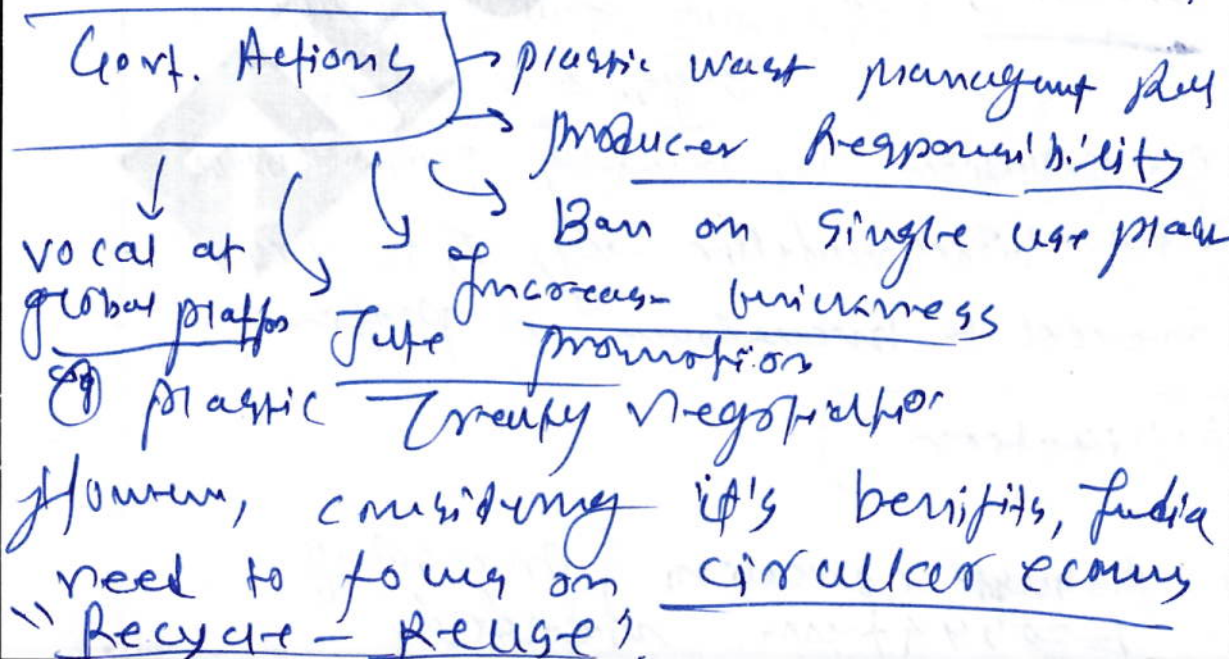 Govt. Actions → plastic wast managemt Rul
→ producer Responsibility
Ban on Single use plas
vocal at
Increase thickness
global platfos Jute promotion
eg plastic Treaty Negotiation
However, considering it's benifits, India
need to focus on circullar econmy
"Recycle - Reuse"